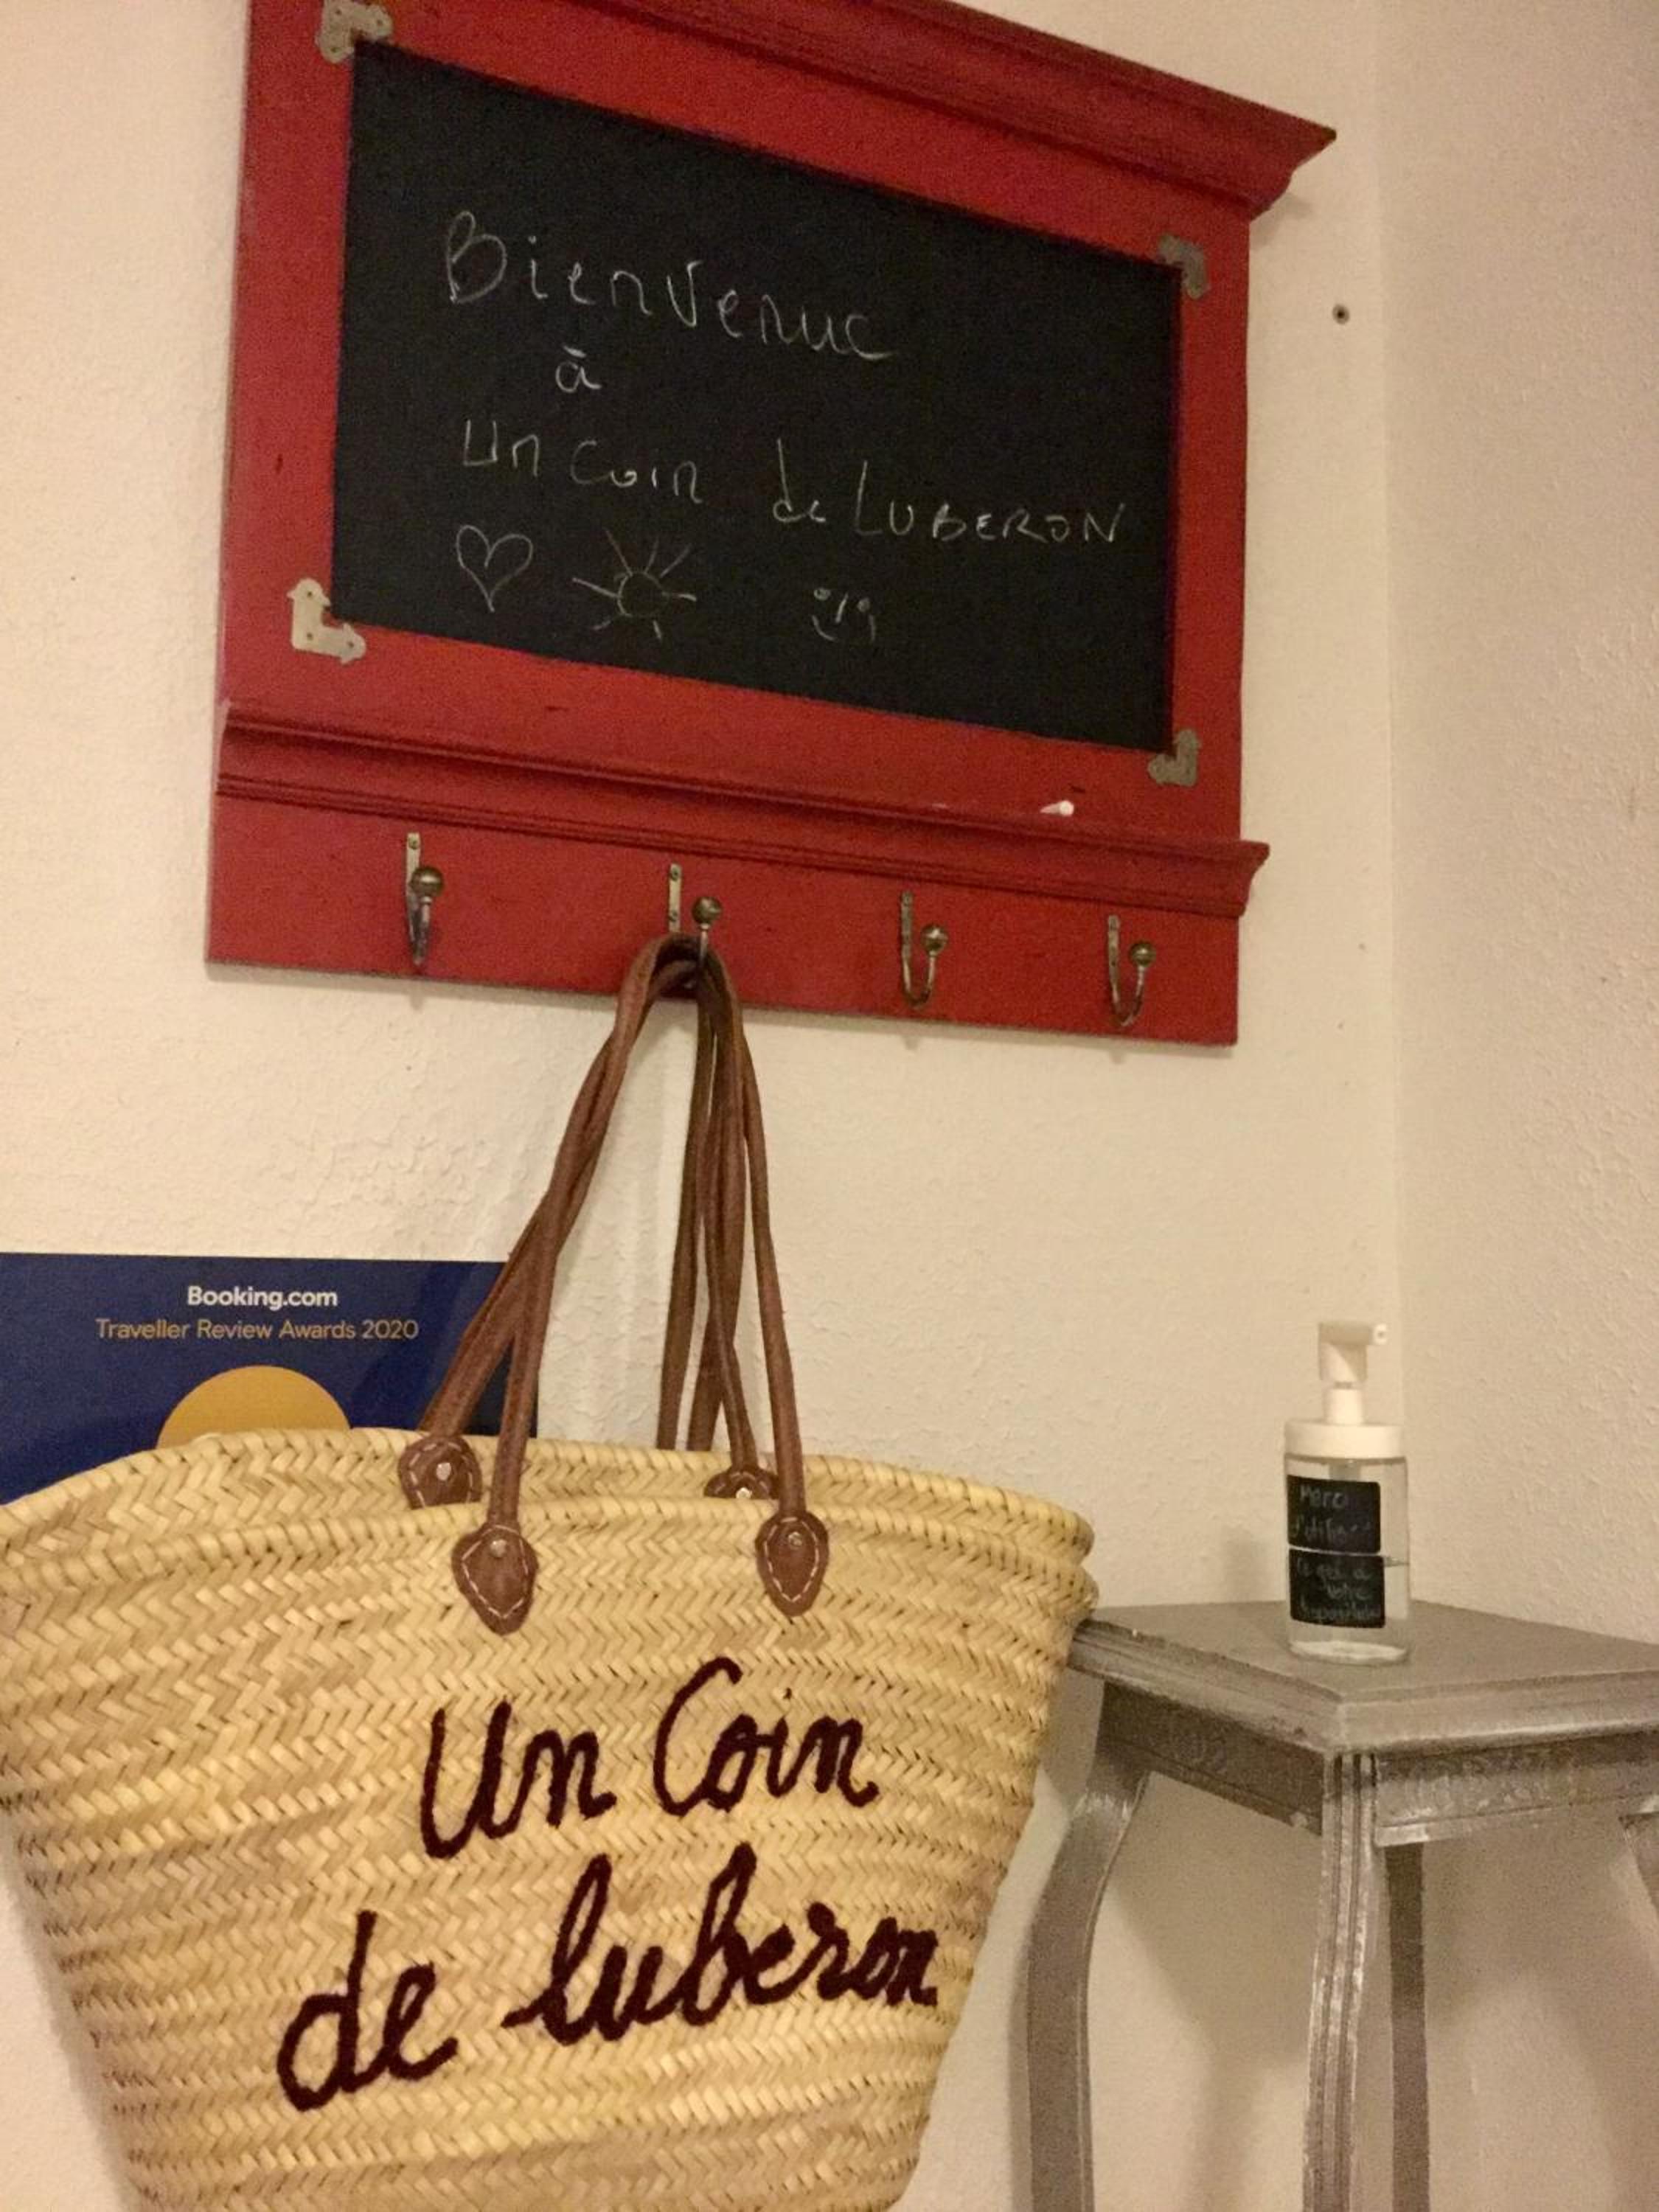 Bienvenue
à
Un Coin de LUBERON
Booking.com
Traveller Review Awards 2020
Merci
d'utiliser
ce gel à
votre
disposition
Un Coin
de luberon